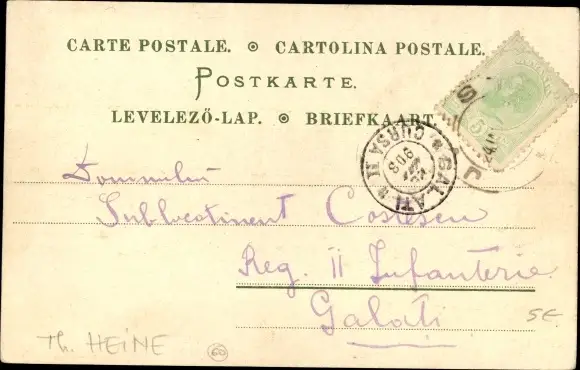 CARTE POSTALE. ⊙ CARTOLINA POSTALE.
POSTKARTE.
LEVELEZŐ-LAP. ⊙ BRIEFKAART.
5
GALATI
CURSA II
903
Domnului
Sublocotinent Costescu
Reg. II Infanterie
Galati
Th. HEINE
60
SE